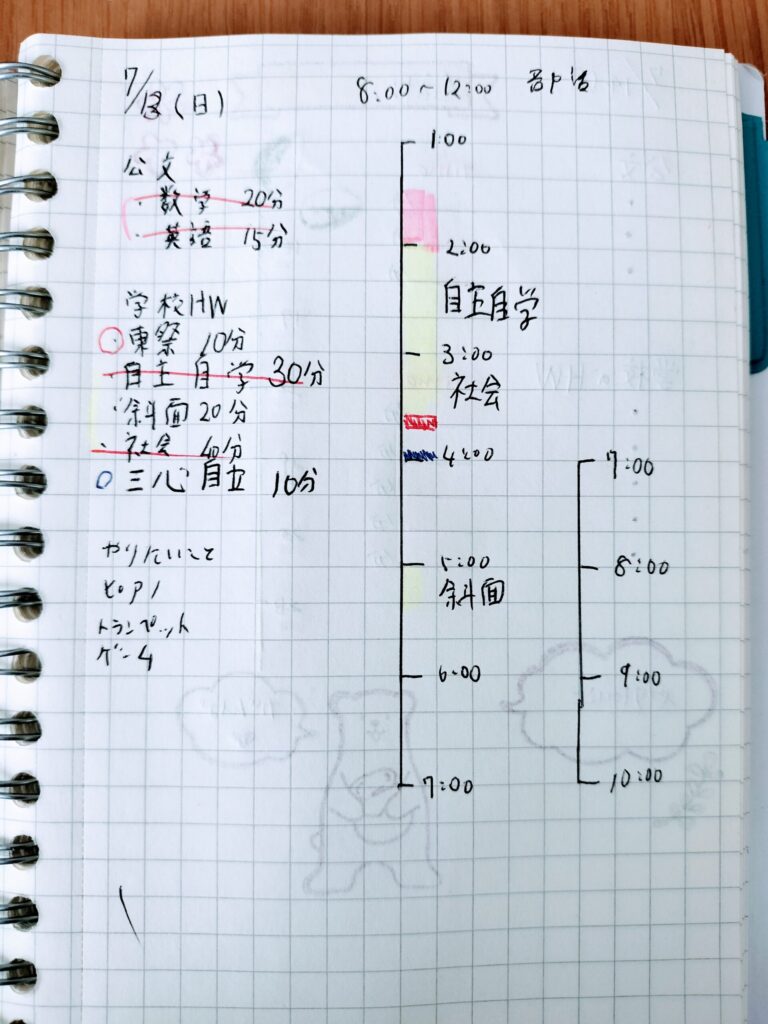 (日)
8:00~12:00 部活
公文
・数学 20分
・英語 15分
学校HW
・東祭 10分
・自主自学 30分
・斜面 20分
・社会 40分
三心自立 10分
やりたいこと
ピアノ
トランペット
ゲーム
1:00
2:00
自主自学
3:00
社会
4:00
5:00
斜面
6:00
7:00
7:00
8:00
9:00
10:00